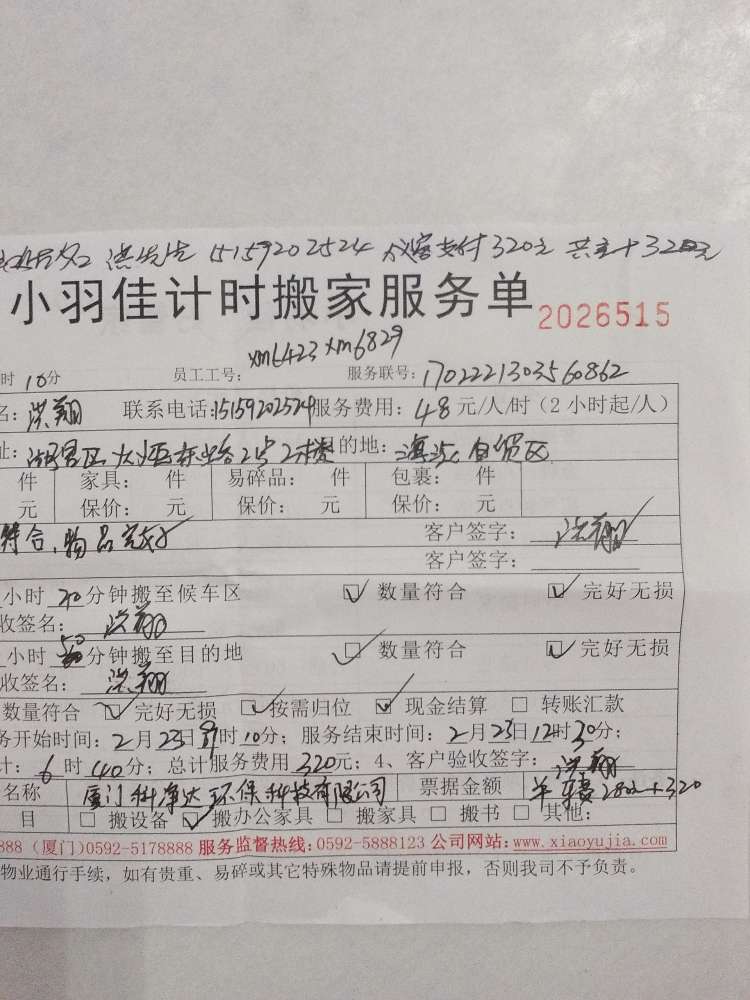 洪先生 15159202524 支付320元 共
小羽佳计时搬家服务单 2026515
xm6423 xm6829
时10分 员工工号: 服务联号: 1702221303560862
名: 洪翔 联系电话:15159202524 服务费用: 48元/人/时(2小时起/人)
址: 2楼 目的地: 自贸区
件 家具: 件 易碎品: 件 包裹: 件
元 保价: 元 保价: 元 保价: 元
符合、物品完好 客户签字: 洪翔
客户签字:
小时20分钟搬至候车区 ☑数量符合 ☑完好无损
收签名: 洪翔
小时50分钟搬至目的地 ☑数量符合 ☑完好无损
收签名: 洪翔
数量符合 ☑完好无损 ☑按需归位 ☑现金结算 □转账汇款
务开始时间: 2月23日 时10分; 服务结束时间: 2月23日12时30分;
计: 6时40分; 总计服务费用320元; 4、客户验收签字: 洪翔
名称 厦门科净达环保科技有限公司 票据金额 280+320
目 □搬设备 ☑搬办公家具 □搬家具 □搬书 □其他:
888 (厦门)0592-5178888 服务监督热线:0592-5888123 公司网站: www.xiaoyujia.com
物业通行手续, 如有贵重、易碎或其它特殊物品请提前申报, 否则我司不予负责。